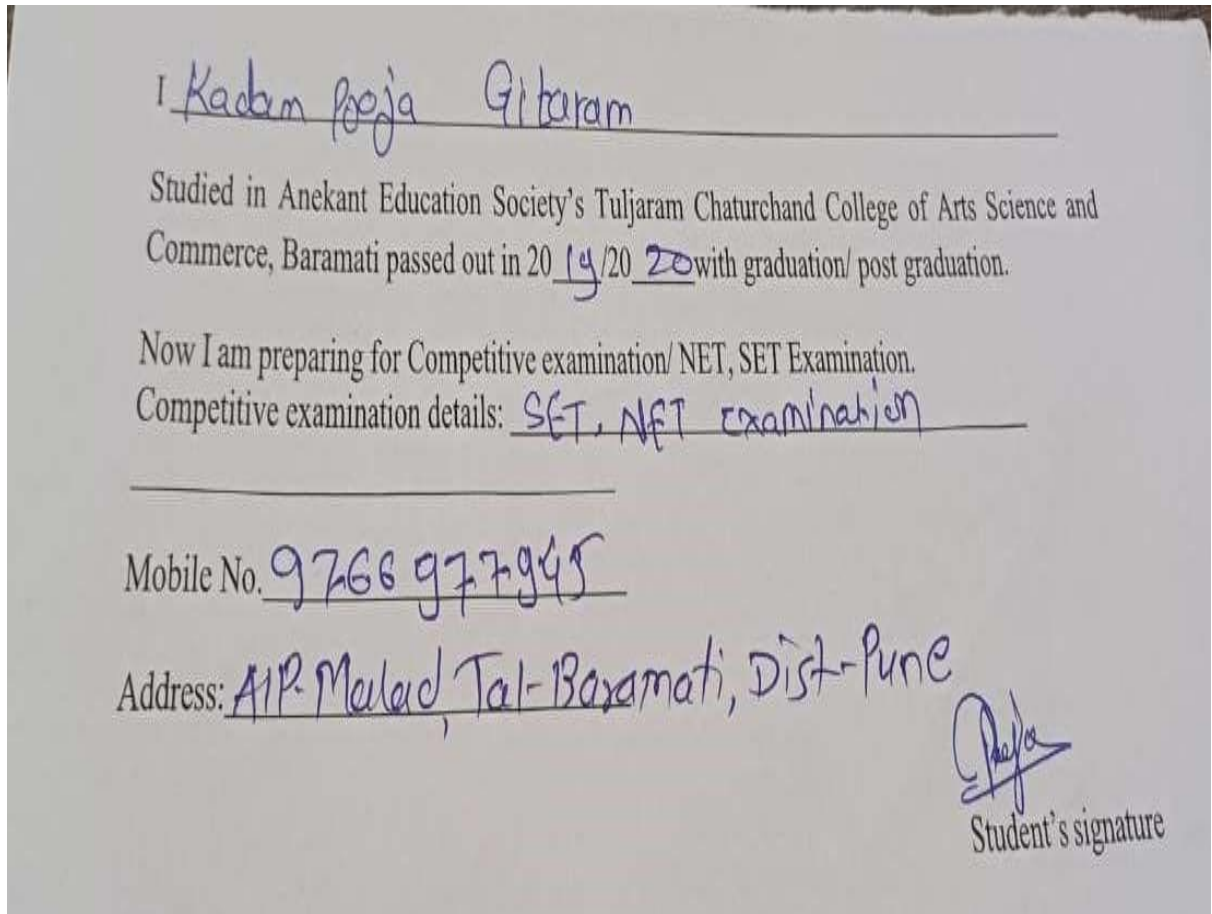 I Kadam Pooja Gitaram
Studied in Anekant Education Society's Tuljaram Chaturchand College of Arts Science and
Commerce, Baramati passed out in 2019/2020 with graduation/ post graduation.
Now I am preparing for Competitive examination/ NET, SET Examination.
Competitive examination details: SET, NET Examination
Mobile No. 9766977945
Address: A/P-Malad, Tal-Baramati, Dist-Pune
Pooja
Student's signature